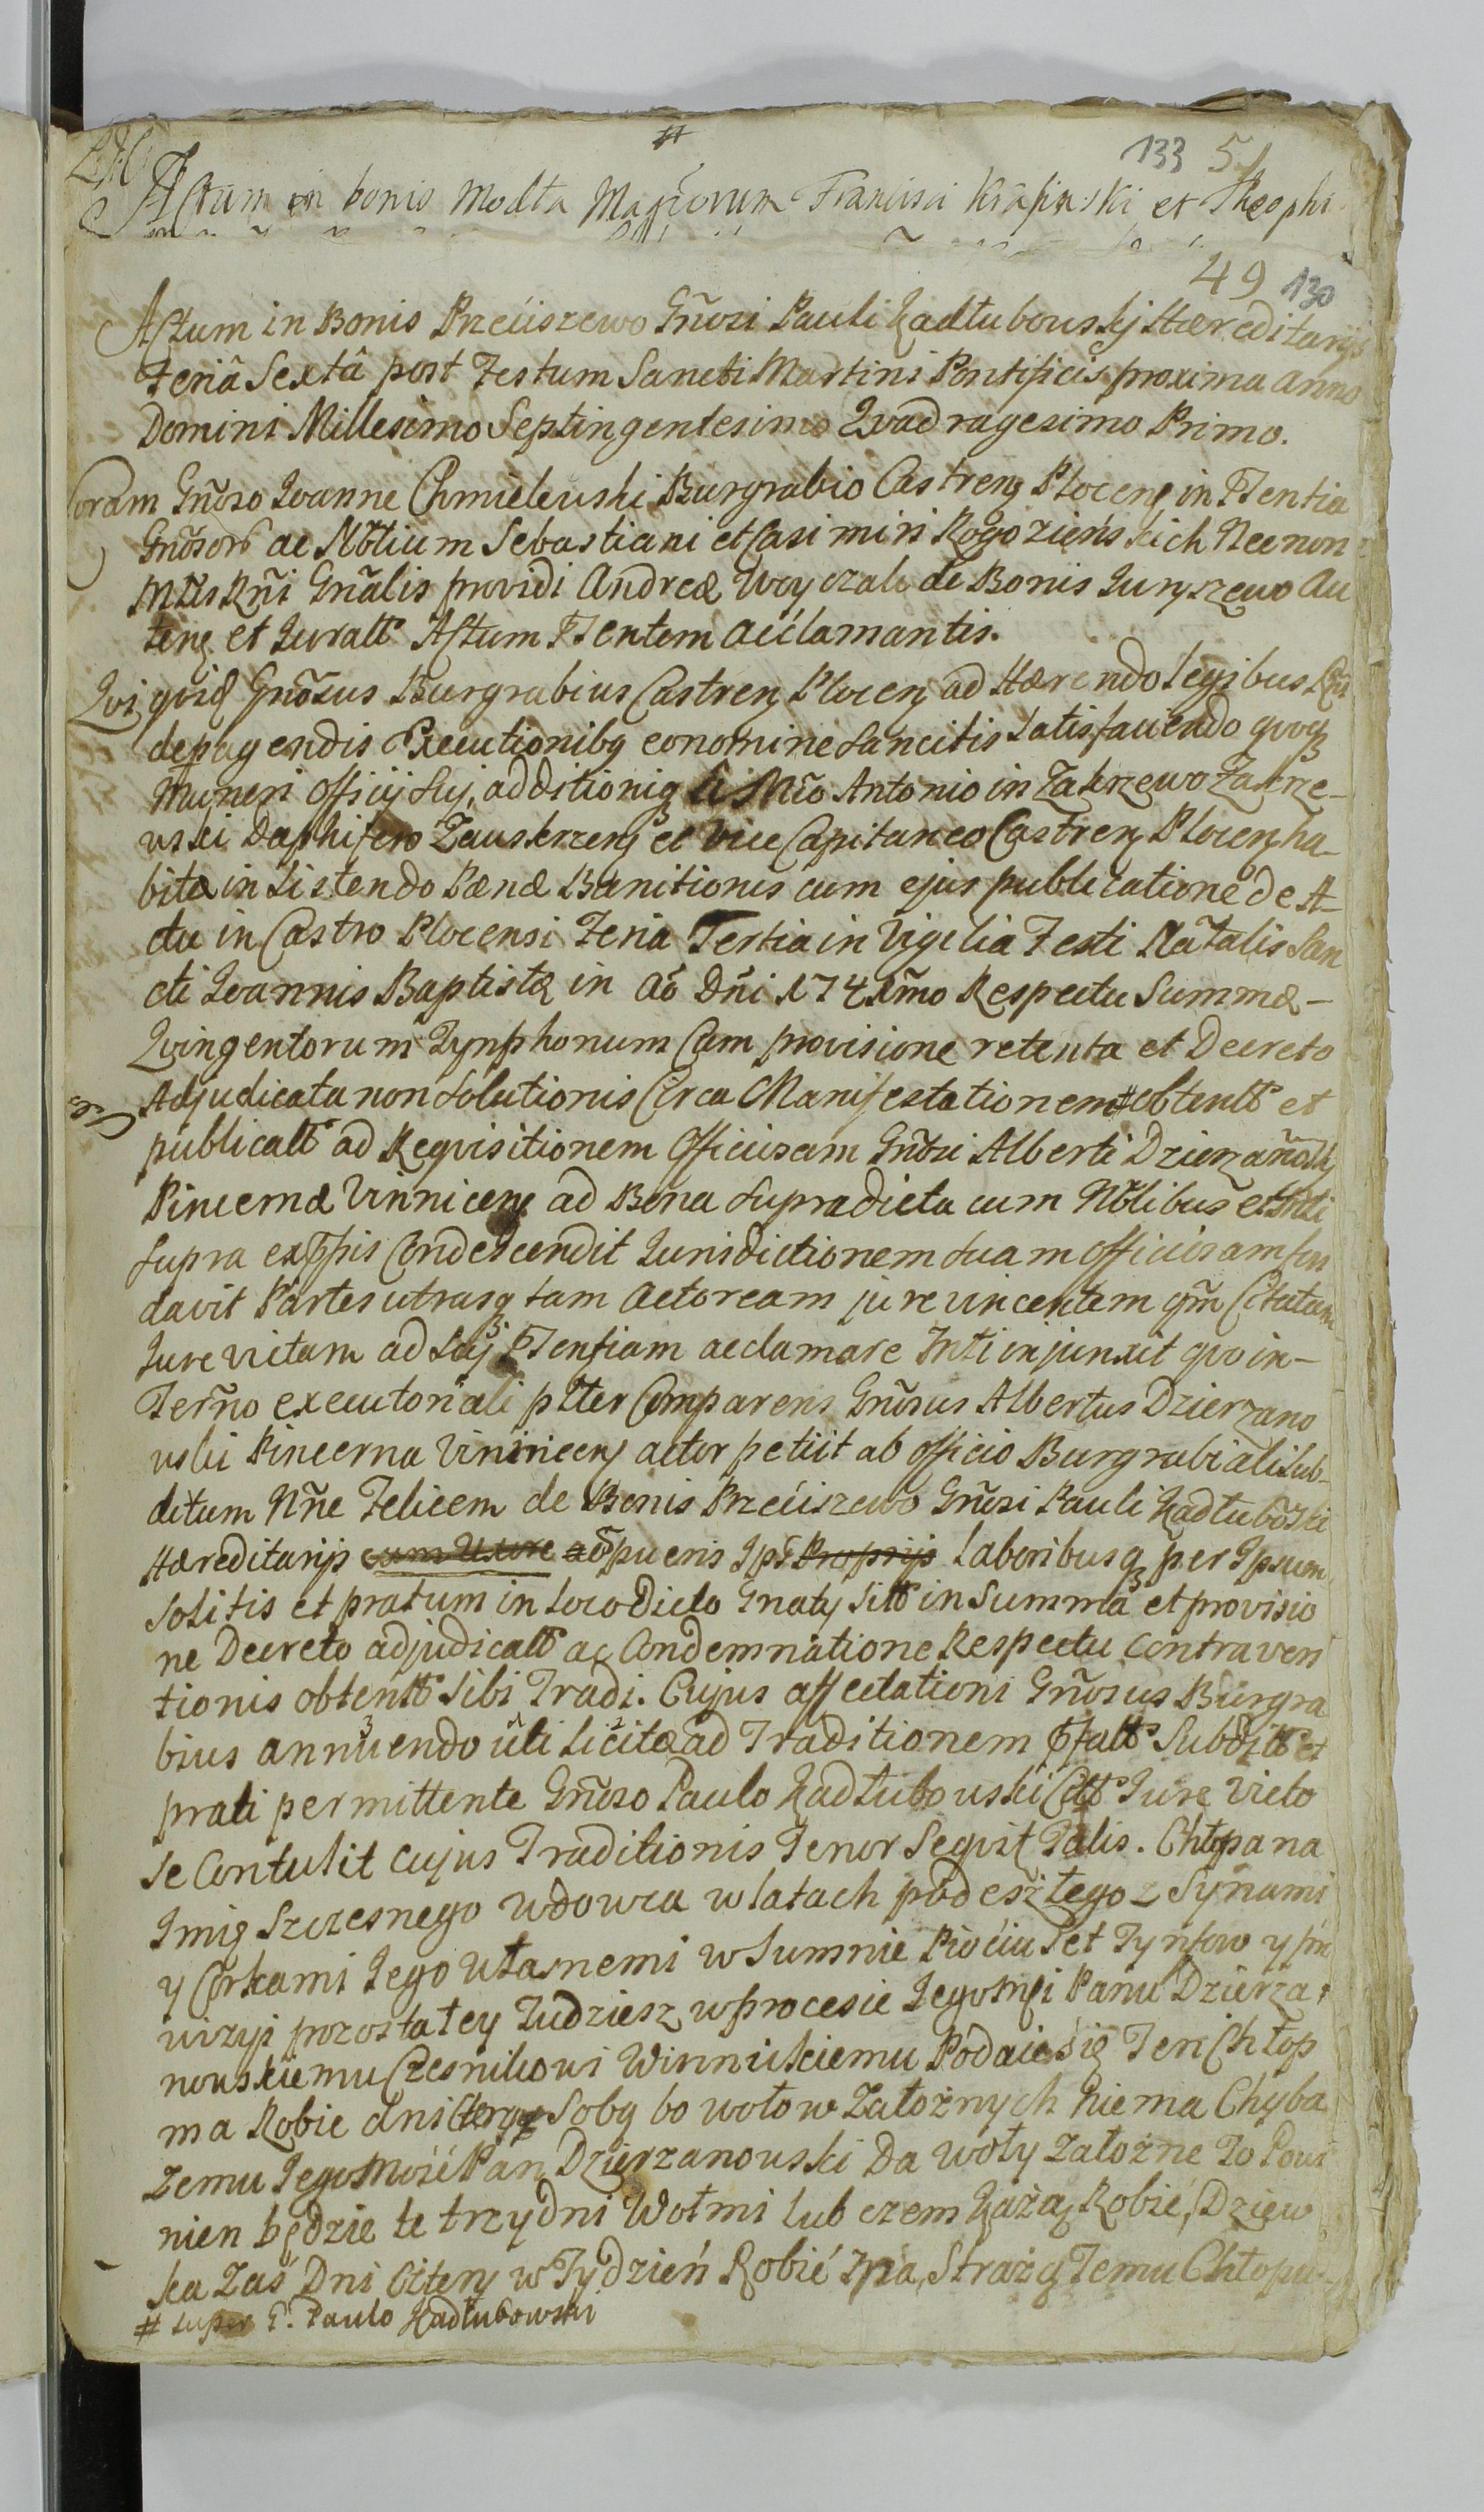 133 51
Actum in bonis Modła Magcorum Francisci Krasinski et Theophi
49 130
Actum in Bonis Przeciszewo Gnosi Pauli Kadłubowskj Hæreditarijs
Feriâ Sextâ post Festum Sancti Martini Pontificis proxima Anno
Domini Millesimo Septingentesimo Qvadragesimo Primo.
Coram Gnoso Ioanne Chmielewski Burgrabio Castrenẜ Plocenẜ in Pñtia
Gnosorū ac Nobilium Sebastiani et Casimiri Rogozieńskich Nec non
Mtis Rñi Gñalis providi Andreæ Woyczak de Bonis Juryszewo Au
tenẜ et Juratt Actum Pñtentem acclamantis.
Qvi qvidẽ Gnosus Burgrabius Castrenẜ Plocenẜ ad Hærendo legibus
depagendis Executionibꝫ eo nomine sancitis satisfaciendo qvoqꝫ
Muneri Officij suj, additioniqꝫ Mco Antonio in Zakrzewo Zakrze-
wski Daphifero Zauskrzenẜ et Vice Capitaneo Castrenẜ Plocenẜ ha-
bitæ insistendo Pænæ Banitionis cum ejus publicatione de A-
ctu in Castro Plocensi Feria Tertia in Vigilia Festi Natalis San
cti Ioannis Baptistæ in Aõ Dñi 1741mo Respectu Summæ -
Qvingentorum Tynphonum Cum provisione retenta et Decreto
Adjudicata non solutionis Circa Manifestationem # obtentt et
publicatt ad Reqvisitionem Officiosam Gnosi Alberti Dzierzanosk
Pincernæ Vinnicenẜ ad Bona supradicta cum Nobilibus et Mti
supra expssis Condescendit Iurisdictionem suam Officiosam fun
davit Partes utrasqꝫ tam Actoream jure vincentem qm Citatam
Iure victam ad suj Pñtentiam acclamare Mti injunxit qvo in-
Termo executoriali pltter Comparens Gnosus Albertus Dzierzano
wski Pincerna Vinnicenẜ actor petiit ab Officio Burgrabiali sub-
ditum Nne Felicem de Bonis Przeciszewo Gnosi Pauli Kadłuboski
Hæreditarijs cum Uxore ac pueris Ipi Proprijs laboribusqꝫ per Ipsum
solitis et pratum in loco dicto Gnaty sitt in Summa et provisio
ne Decreto adjudicatt ac Condemnatione Respectu contraven
tionis obtentt sibi Tradi. Cujus affectationi Gnosus Burgra
bius annuendo uti licitæ ad Traditionem pfatt Subditt et
prati permittente Gnoso Paulo Kadłubowski Citt Iure Victo
se Contulit cujus Traditionis Tenor Seqvitr Talis. Chłopa na
Imię Szczesnego wdowca w latach podeszłego z Synami
y Corkami Iego własnemi w Summie Piociu Set Tynfow y pro
wizyi pozostałey Tudziesz w procesie Iegomsci Panu Dzierża-
nowskiemu Czesnikowi Winnickiemu Podaie się Ten Chłop
ma Robic dni Cztery Sobą bo wołow Załoznych niema Chyba
zemu Iegomość Pan Dzierzanowski Da woły załozne To Powi
nien będzie te trzy dni Wołmi lub czem każą Robić, Dziew
ka Zas Dni Cztery w Tydzień Robić ma, Strażą Temu Chłopu
# super G. Paulo Kadłubowski